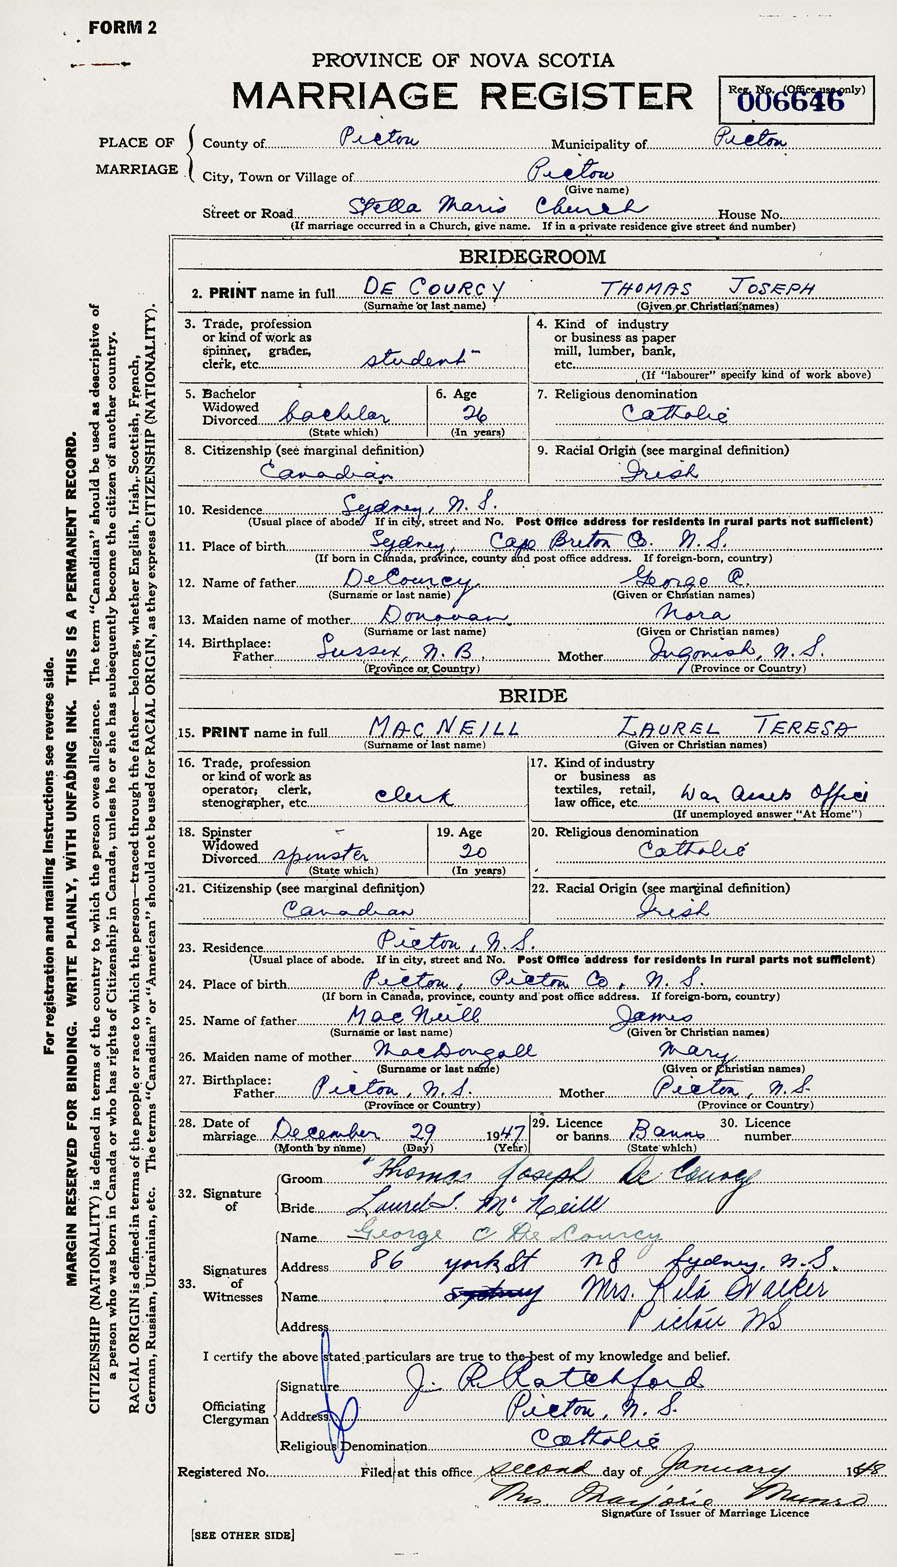 FORM 2
PROVINCE OF NOVA SCOTIA
MARRIAGE REGISTER
Reg. No. (Office use only)
006646
PLACE OF MARRIAGE
County of Pictou Municipality of Pictou
City, Town or Village of Pictou
(Give name)
Street or Road Stella Maris Church House No.
(If marriage occurred in a Church, give name. If in a private residence give street and number)
BRIDEGROOM
2. PRINT name in full DE COURCY THOMAS JOSEPH
(Surname or last name) (Given or Christian names)
3. Trade, profession or kind of work as spinner, grader, clerk, etc. student
4. Kind of industry or business as paper mill, lumber, bank, etc.
(If "labourer" specify kind of work above)
5. Bachelor Widowed Divorced bachelor
(State which)
6. Age 26
(In years)
7. Religious denomination
Catholic
8. Citizenship (see marginal definition)
Canadian
9. Racial Origin (see marginal definition)
Irish
10. Residence Sydney, N.S.
(Usual place of abode. If in city, street and No. Post Office address for residents in rural parts not sufficient)
11. Place of birth Sydney, Cape Breton Co. N.S.
(If born in Canada, province, county and post office address. If foreign-born, country)
12. Name of father DeCourcy George C.
(Surname or last name) (Given or Christian names)
13. Maiden name of mother Donovan Nora
(Surname or last name) (Given or Christian names)
14. Birthplace:
Father Sussex, N.B. Mother Ingonish, N.S.
(Province or Country) (Province or Country)
BRIDE
15. PRINT name in full MACNEILL LAUREL TERESA
(Surname or last name) (Given or Christian names)
16. Trade, profession or kind of work as operator, clerk, stenographer, etc. clerk
17. Kind of industry or business as textiles, retail, law office, etc. War Assets Office
(If unemployed answer "At Home")
18. Spinster Widowed Divorced spinster
(State which)
19. Age 20
(In years)
20. Religious denomination
Catholic
21. Citizenship (see marginal definition)
Canadian
22. Racial Origin (see marginal definition)
Irish
23. Residence Pictou, N.S.
(Usual place of abode. If in city, street and No. Post Office address for residents in rural parts not sufficient)
24. Place of birth Pictou, Pictou Co, N.S.
(If born in Canada, province, county and post office address. If foreign-born, country)
25. Name of father MacNeill James
(Surname or last name) (Given or Christian names)
26. Maiden name of mother MacDougall Mary
(Surname or last name) (Given or Christian names)
27. Birthplace:
Father Pictou, N.S. Mother Pictou, N.S.
(Province or Country) (Province or Country)
28. Date of marriage December 29 1947
(Month by name) (Day) (Year)
29. Licence or banns Banns
(State which)
30. Licence number
32. Signature of
Groom Thomas Joseph De Courcy
Bride Laurel T. McNeill
33. Signatures of Witnesses
Name George C De Courcy
Address 86 York St NS Sydney, N.S.
Name Sydney Mrs. Rita Walker
Address Pictou NS
I certify the above stated particulars are true to the best of my knowledge and belief.
Officiating Clergyman
Signature J. R. Ratchford
Address Pictou, N.S.
Religious Denomination Catholic
Registered No. Filed at this office second day of January 1948
Mrs. Marjorie Munro
Signature of Issuer of Marriage Licence
[SEE OTHER SIDE]
For registration and mailing instructions see reverse side.
MARGIN RESERVED FOR BINDING. WRITE PLAINLY, WITH UNFADING INK. THIS IS A PERMANENT RECORD.
CITIZENSHIP (NATIONALITY) is defined in terms of the country to which the person owes allegiance. The term "Canadian" should be used as descriptive of
a person who was born in Canada or who has rights of Citizenship in Canada, unless he or she has subsequently become the citizen of another country.
RACIAL ORIGIN is defined in terms of the people or race to which the person—traced through the father—belongs, whether English, Irish, Scottish, French,
German, Russian, Ukrainian, etc. The terms "Canadian" or "American" should not be used for RACIAL ORIGIN, as they express CITIZENSHIP (NATIONALITY).